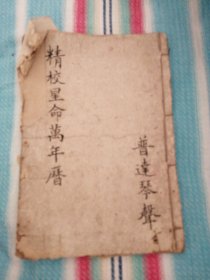 精校星命萬年曆
普達琴聲